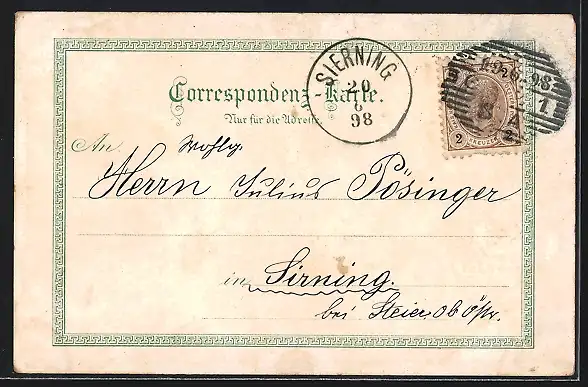 Correspondenz-Karte.
Nur für die Adresse.
SIERNING
20
6
98
98
1
2
KREUZER
2
An Wohlg.
Herrn Julius Pösinger
in Sirning.
bei Steier Ob Östr.